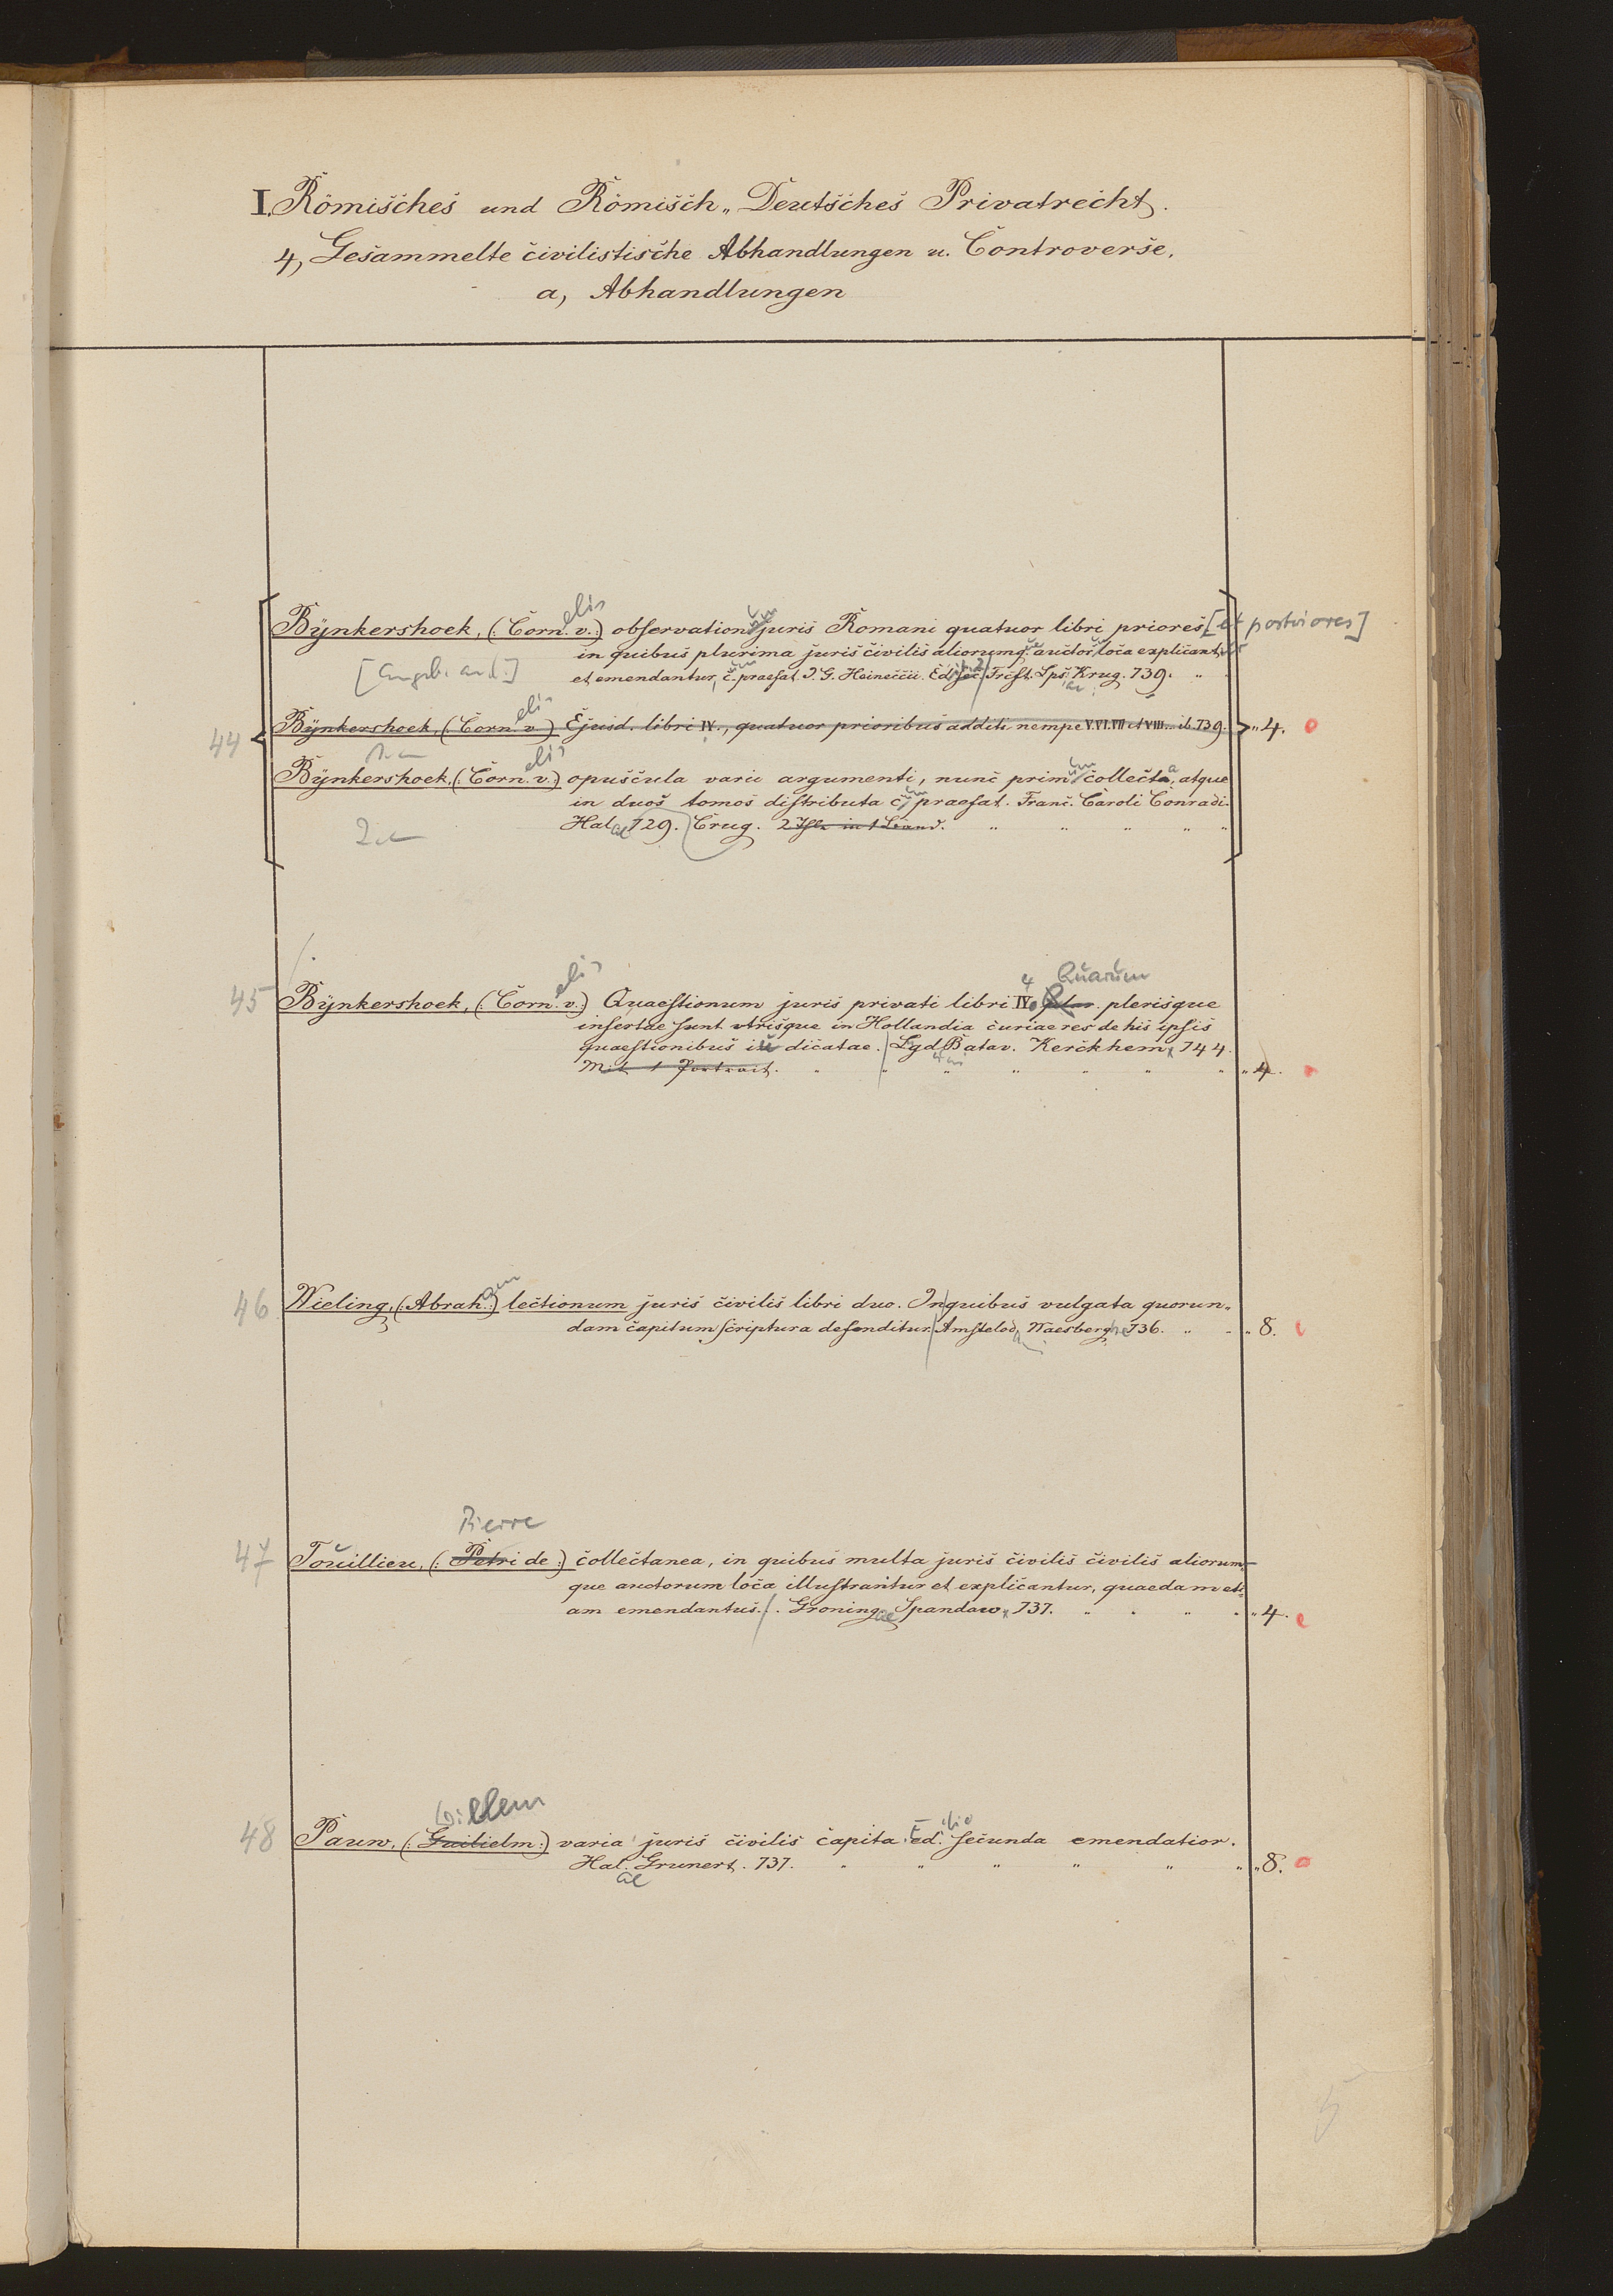 I. Römisches und Römisch „ Deutsches Privatrecht.
4, Gesammelte civilistische Abhandlungen u. Controverse.
a, Abhandlungen
elis um
Bÿnkershoek, (: Corn. v.:) observation juris Romani quatuor libri priores, [et posteriores]
in quibus plurima juris civilis aliorumq. auctor loca explicant
[angeb. and.] et emendantur, c. praefat. J. G. Heineccii. Ed. sec. Frcft. Lps. Krug. 739.
elis
44 Bÿnkershoek, (: Corn. v.) Ejusd. libri IV., quatuor prioribus additi nempe V.VI.VII et VIII. ib. 739. „ 4.
elis um
Bÿnkershoek, (: Corn. v.:) opuscula varii argumenti, nunc prim collecta, atque
in duos tomos distributa c praefat. Franc. Caroli Conradi.
Halae 729. Crug. 2 Thle in 1 Band.
elis 4 Quarum
45 Bÿnkershoek, (: Corn. v.:) Quaestionum juris privati libri IV. plerisque
insertae sunt utrisque in Hollandia curiae res de his ipsis
quaestionibus iu dicatae. Lgd Batav. Kerckhem 744.
Mit 1 Portrait. „ 4.
am
46 Wieling, (: Abrah.:) lectionum juris civilis libri duo. In quibus vulgata quorun„
dam capitum scriptura defenditur. Amstelod. Waesberg 736. „ 8.
Pierre
47 Toüillieu, (: Petri de :) collectanea, in quibus multa juris civilis civilis aliorum„
que auctorum loca illustrantur et explicantur, quaedam eti„
am emendantus. Groningae Spandaw 737. „ 4.
Willem itio
48 Pauw, (: Guilielm :) varia juris civilis capita. Ed. secunda emendatior.
Hal. Grunert. 737. „ 8.
ae
5